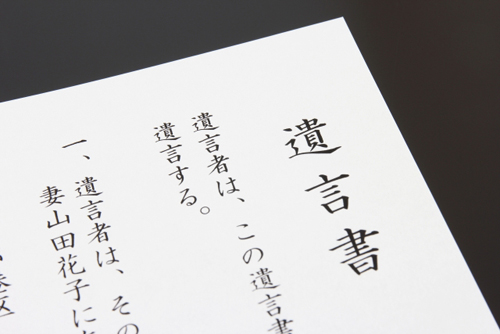 遺言書
遺言者は、この遺言書
遺言する。
一、遺言者は、その
妻山田花子に
区